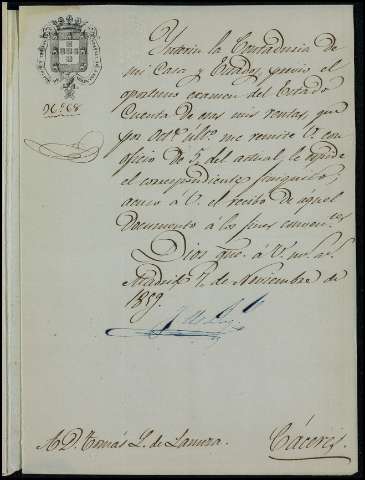 Nº 68
Interin la Contaduria de
mi Casa y Estados, previo el
oportuno examen del Estado
Cuenta de esas mis rentas, que
por Octe. últo. me remite V. con
oficio de 5 del actual, le expide
el correspondiente finiquito,
acuso á V. el recibo de aquel
documento á los fines
Dios gue. á V. ms. as.
Madrid 7 de Noviembre de
1859.
A D. Tomás L. de Lanuza.
Cáceres.